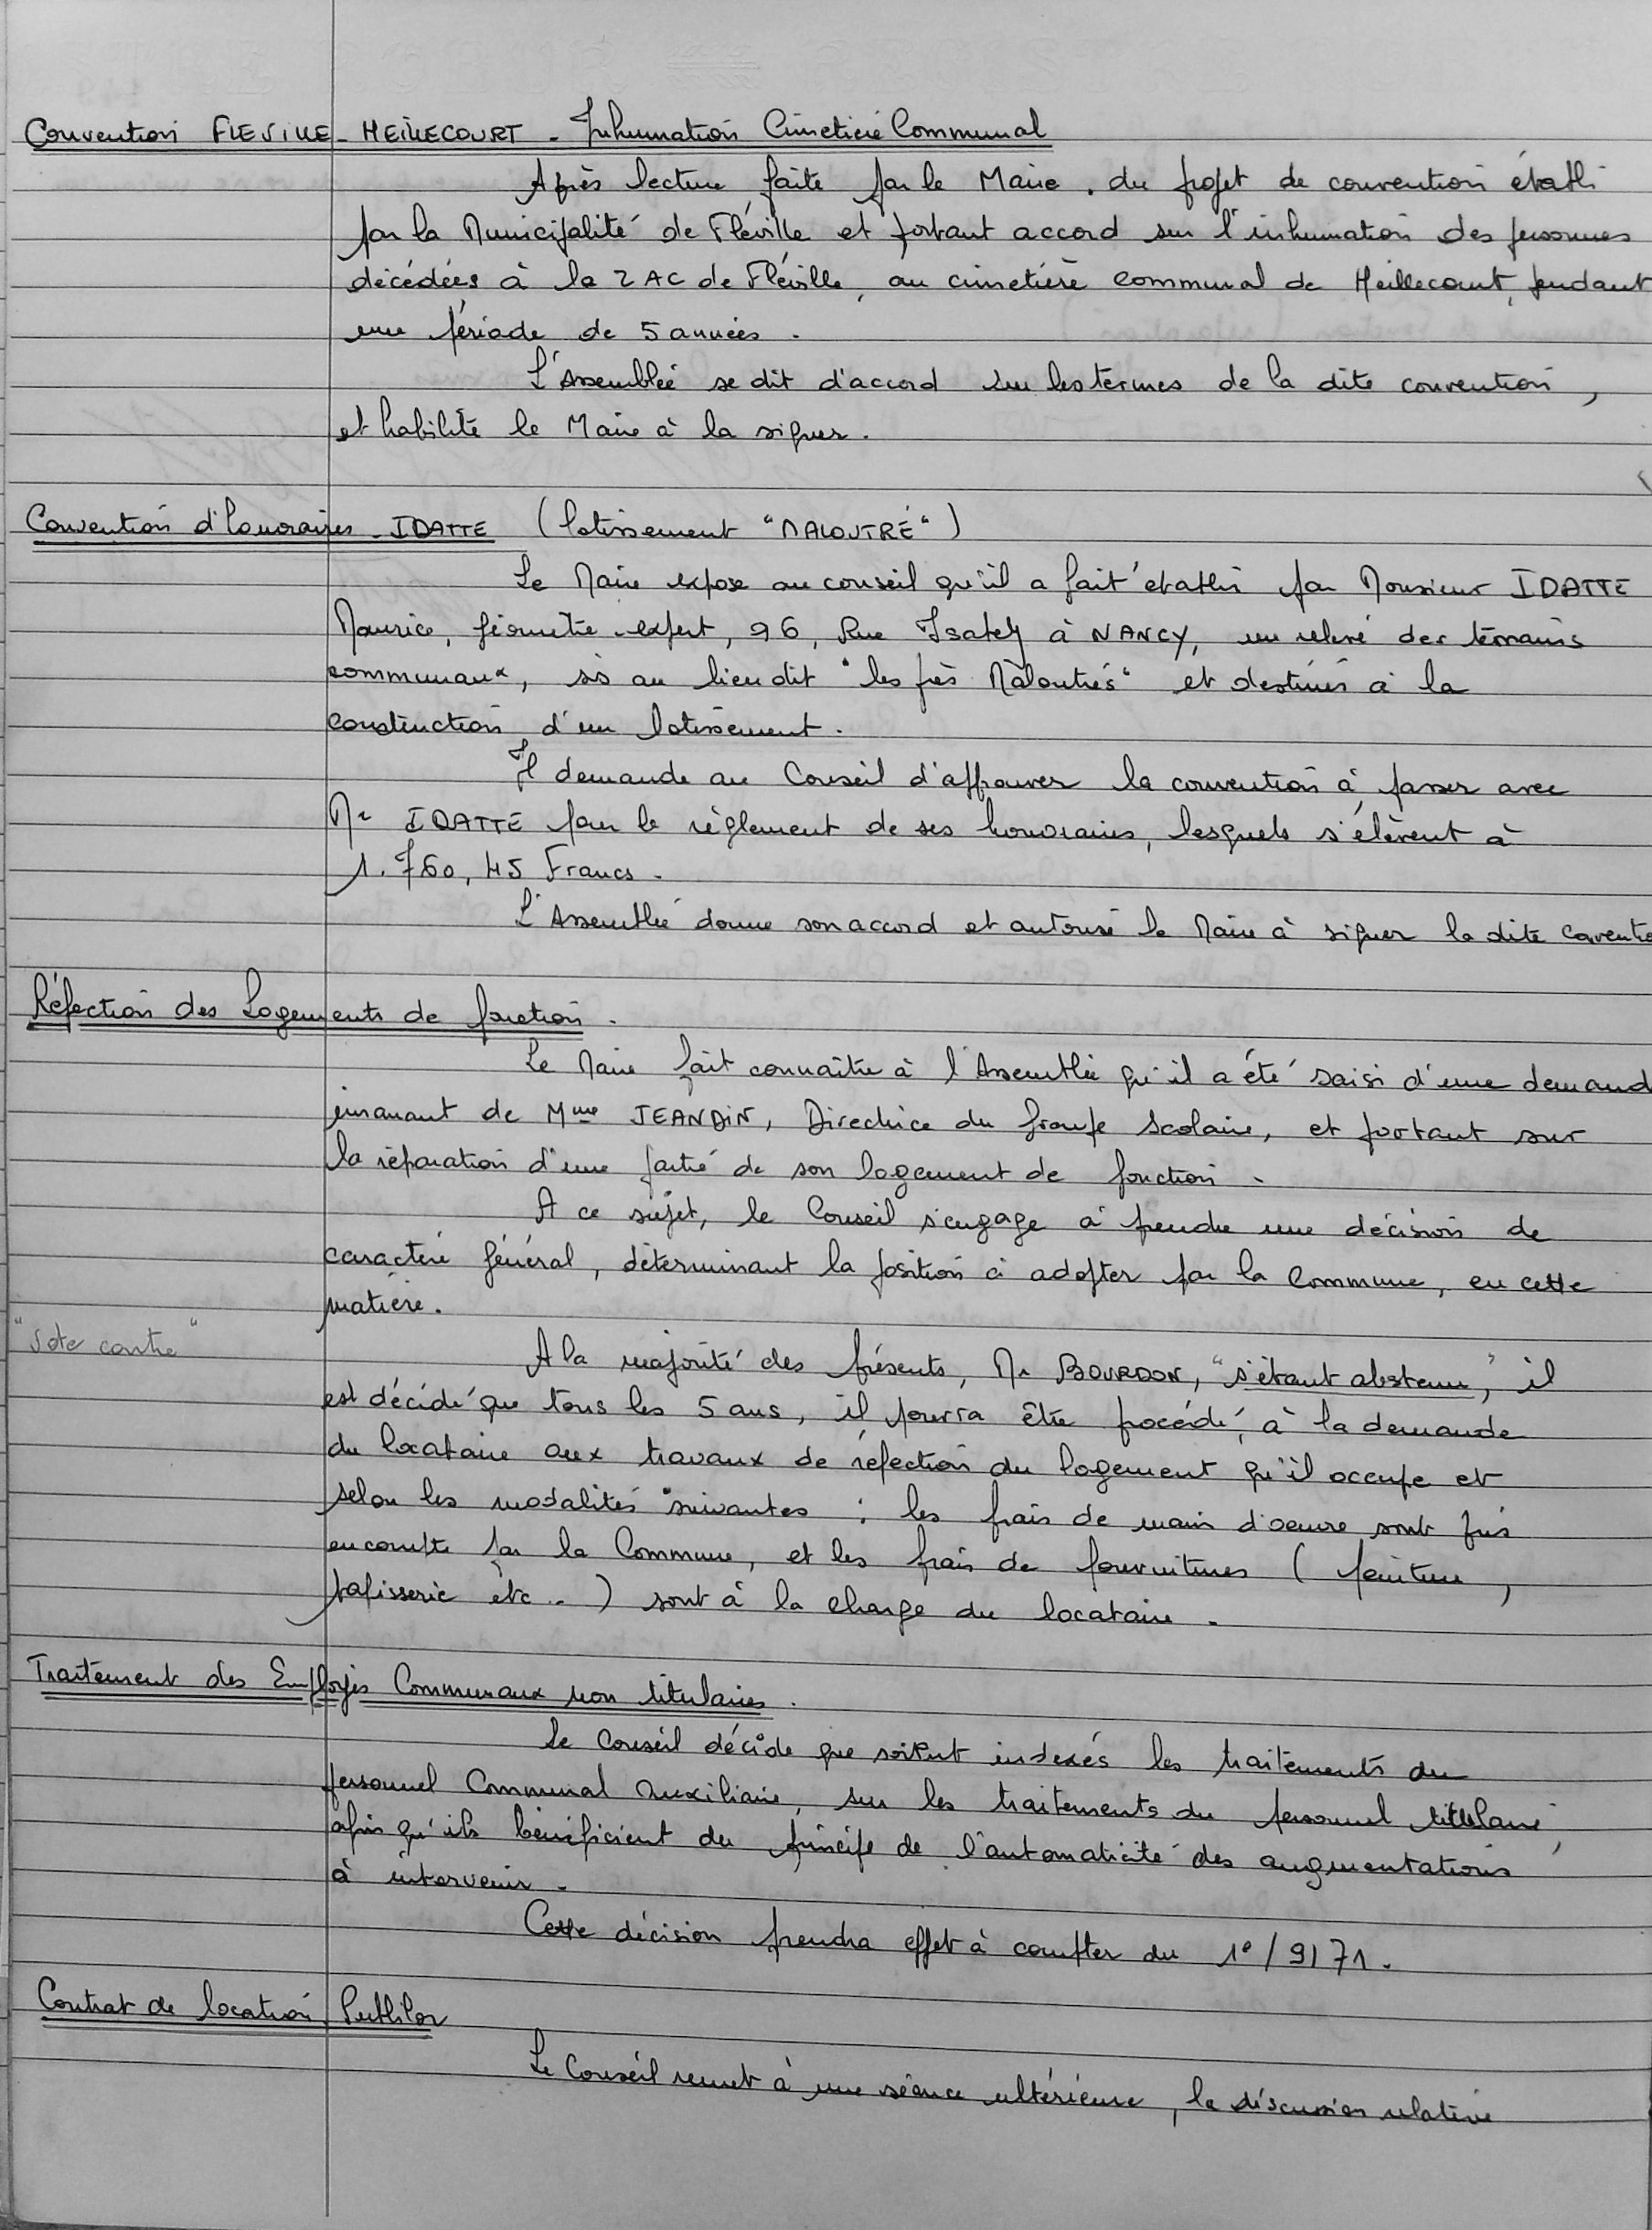 Convention FLEVILLE - HEILLECOURT - Inhumation Cimetière Communal
Après lecture faite par le Maire, du projet de convention établi
par la Municipalité de Fléville et portant accord sur l'inhumation des personnes
décédées à la ZAC de Fléville, au cimetière communal de Heillecourt, pendant
une période de 5 années.
L'Assemblée se dit d'accord sur les termes de la dite convention,
et habilite le Maire à la signer.
Convention d'honoraires - IDATTE (lotissement "MALOUTRÉ")
Le Maire expose au conseil qu'il a fait établir par Monsieur IDATTE
Maurice, géomètre-expert, 96, Rue Isabey à NANCY, un relevé des terrains
communaux, sis au lieu dit "les prés Maloutrés" et destinés à la
construction d'un lotissement.
Il demande au Conseil d'approuver la convention à passer avec
Mr IDATTE pour le règlement de ses honoraires, lesquels s'élèvent à
1.760,45 Francs.
L'Assemblée donne son accord et autorise le Maire à signer la dite conventio
Réfection des Logements de fonction.
Le Maire fait connaître à l'Assemblée qu'il a été saisi d'une demand
émanant de Mme JEANDIN, Directrice du Groupe Scolaire, et portant sur
la réparation d'une partie de son logement de fonction.
A ce sujet, le Conseil s'engage à prendre une décision de
caractère général, déterminant la position à adopter par la Commune, en cette
matière.
"Vote contre"
A la majorité des présents, Mr BOURDON, "s'étant abstenu," il
est décidé que tous les 5 ans, il pourra être procédé, à la demande
du locataire aux travaux de réfection du logement qu'il occupe et
selon les modalités suivantes : les frais de main d'oeuvre sont pris
en compte par la Commune, et les frais de fournitures (peinture,
tapisserie etc..) sont à la charge du locataire.
Traitement des Employés Communaux non titulaires.
Le Conseil décide que soient indexés les traitements du
personnel Communal Auxiliaire, sur les traitements du personnel titulaire,
afin qu'ils bénéficient du principe de l'automaticité des augmentations
à intervenir.
Cette décision prendra effet à compter du 1°/9/71.
Contrat de location Publilor
Le Conseil remet à une séance ultérieure, la discussion relative